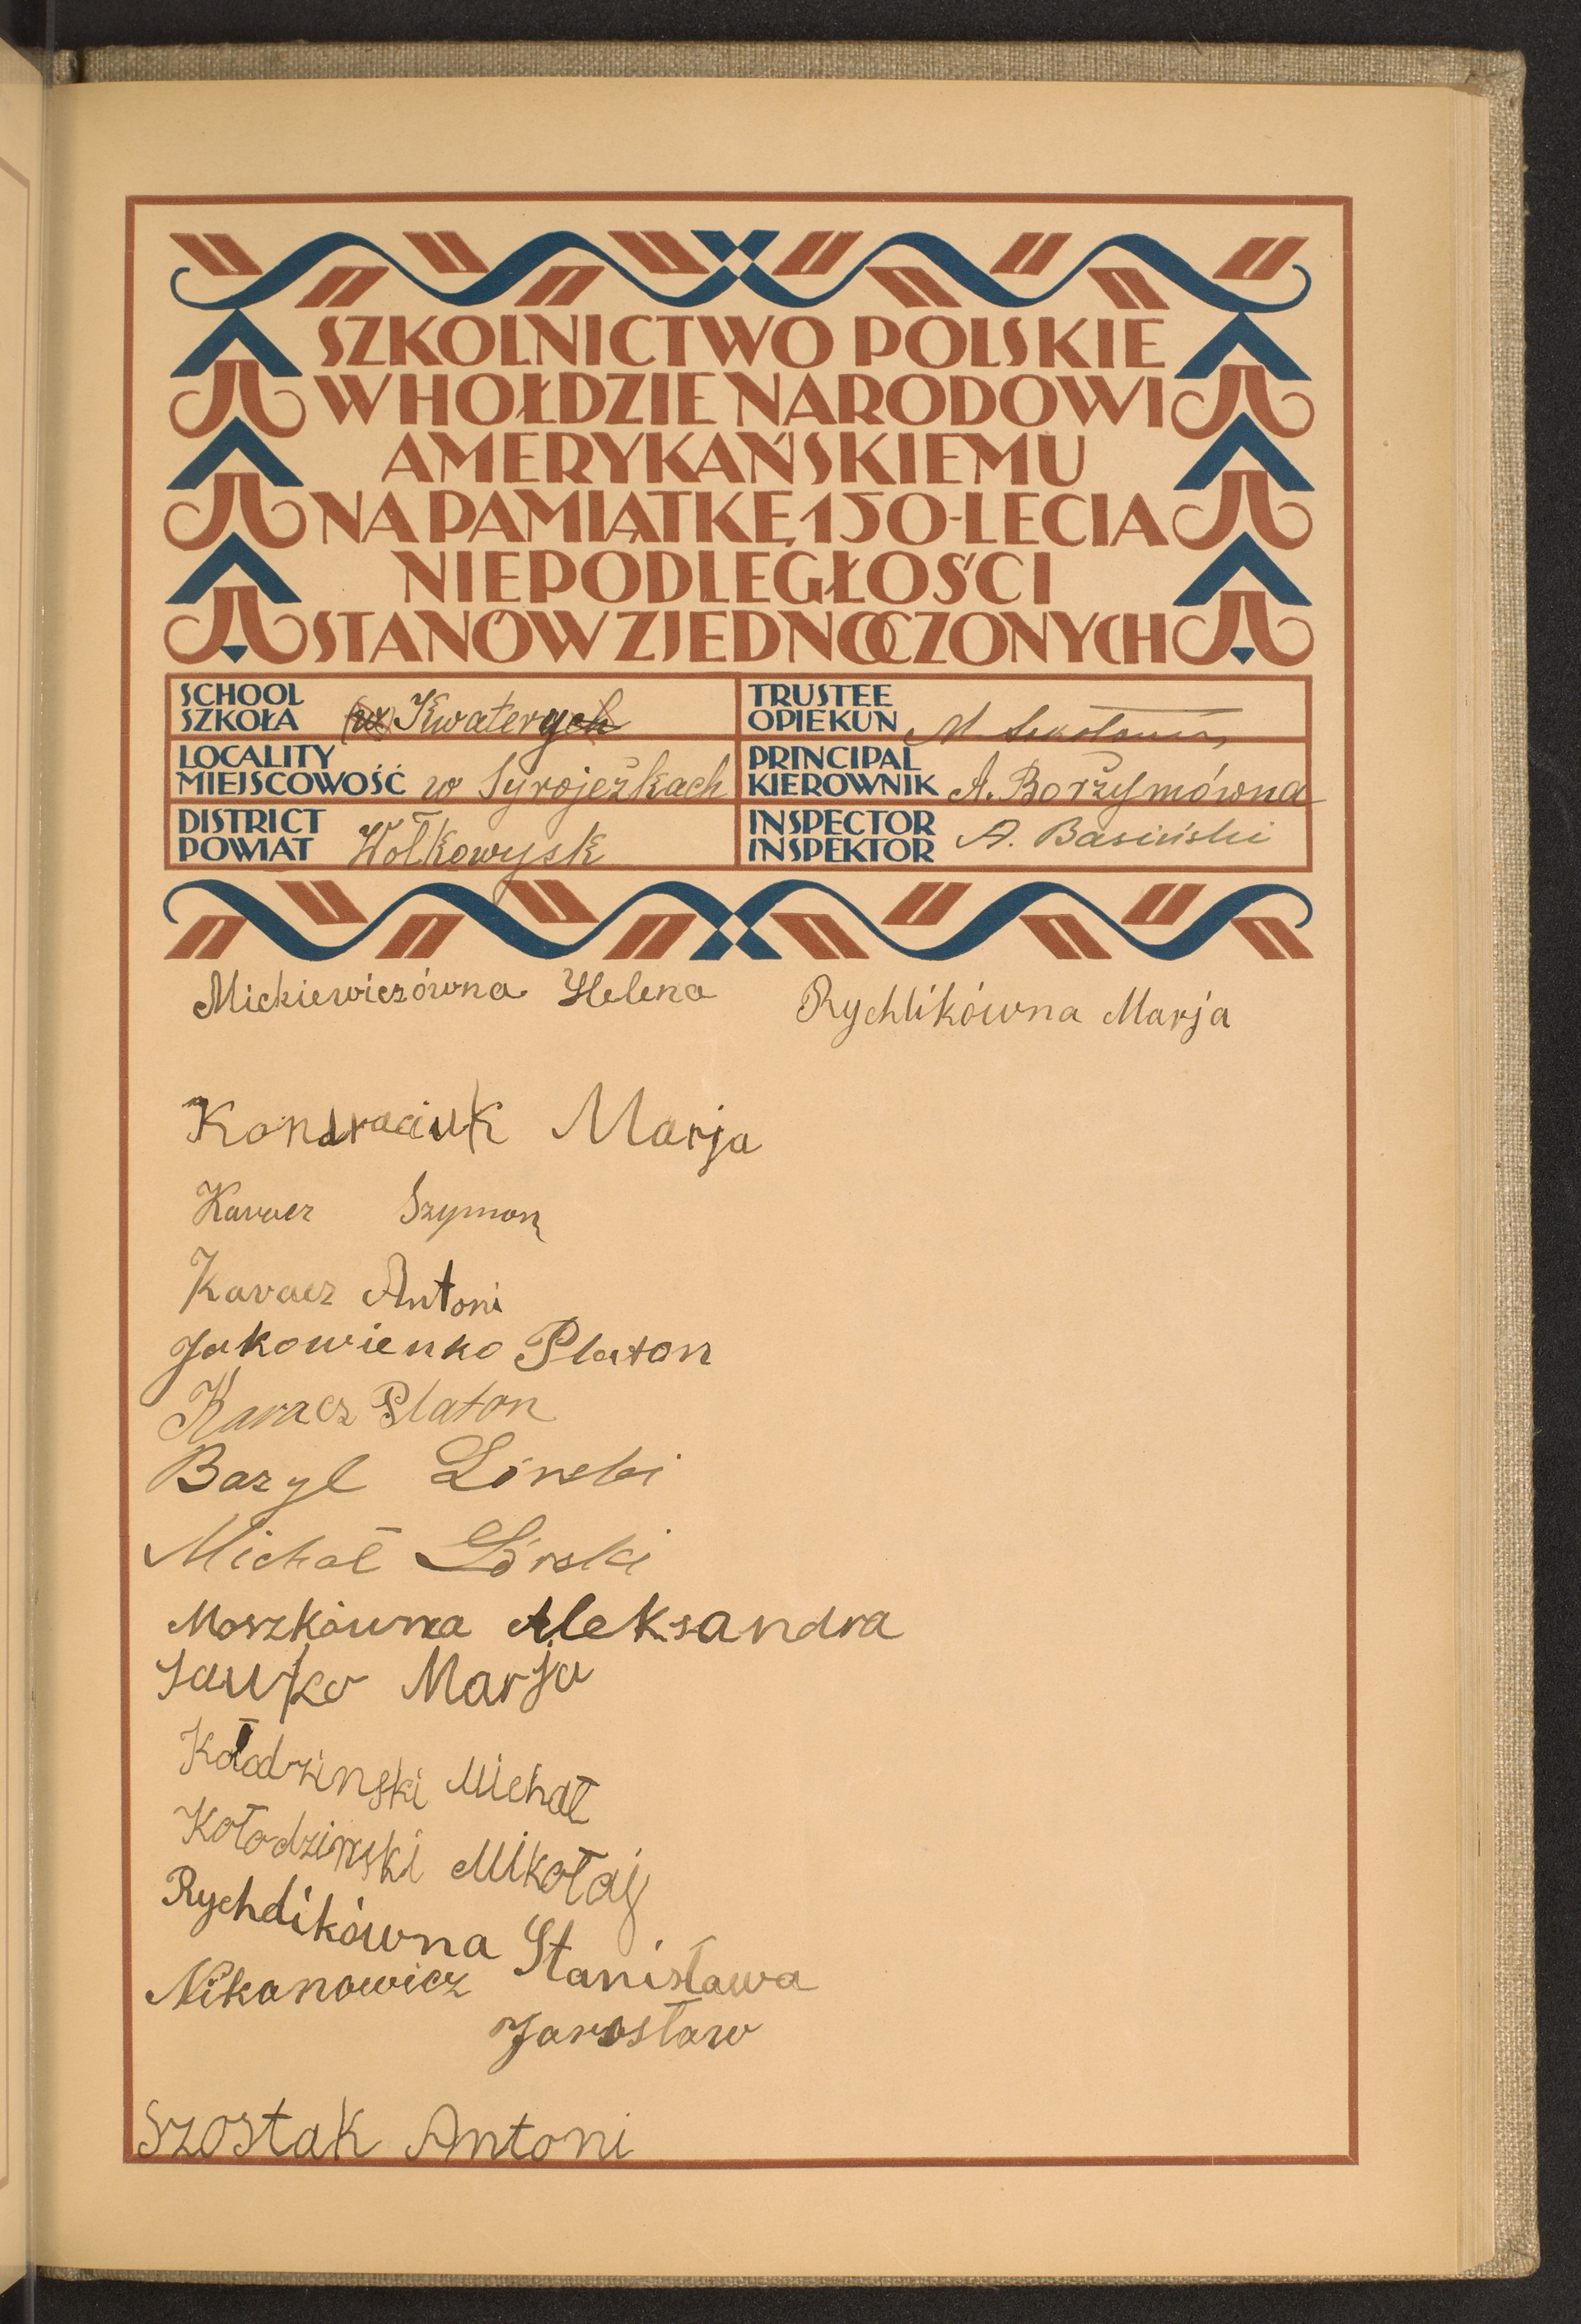 SZKOLNICTWO POLSKIE
W HOŁDZIE NARODOWI
AMERYKAŃSKIEMU
NA PAMIĄTKĘ 150-LECIA
NIEPODLEGŁOŚCI
STANÓW ZJEDNOCZONYCH
SCHOOL
SZKOŁA Kwaterych
TRUSTEE
OPIEKUN M.
LOCALITY
MIEJSCOWOŚĆ w Syrojeżkach
PRINCIPAL
KIEROWNIK A. Borzymówna
DISTRICT
POWIAT Wołkowysk
INSPECTOR
INSPEKTOR A. Basiński
Mickiewiczówna Helena
Rychlikówna Marja
Kondraciuk Marja
Karacz Szymon
Karacz Antoni
Jakowienko Platon
Karacz Platon
Bazyl Lórski
Michał Lórski
Moszkówna Aleksandra
Sawko Marja
Kołodzinski Michał
Kołodzinski Mikołaj
Rychlikówna Stanisława
Nikanowicz
Jarosław
Szostak Antoni